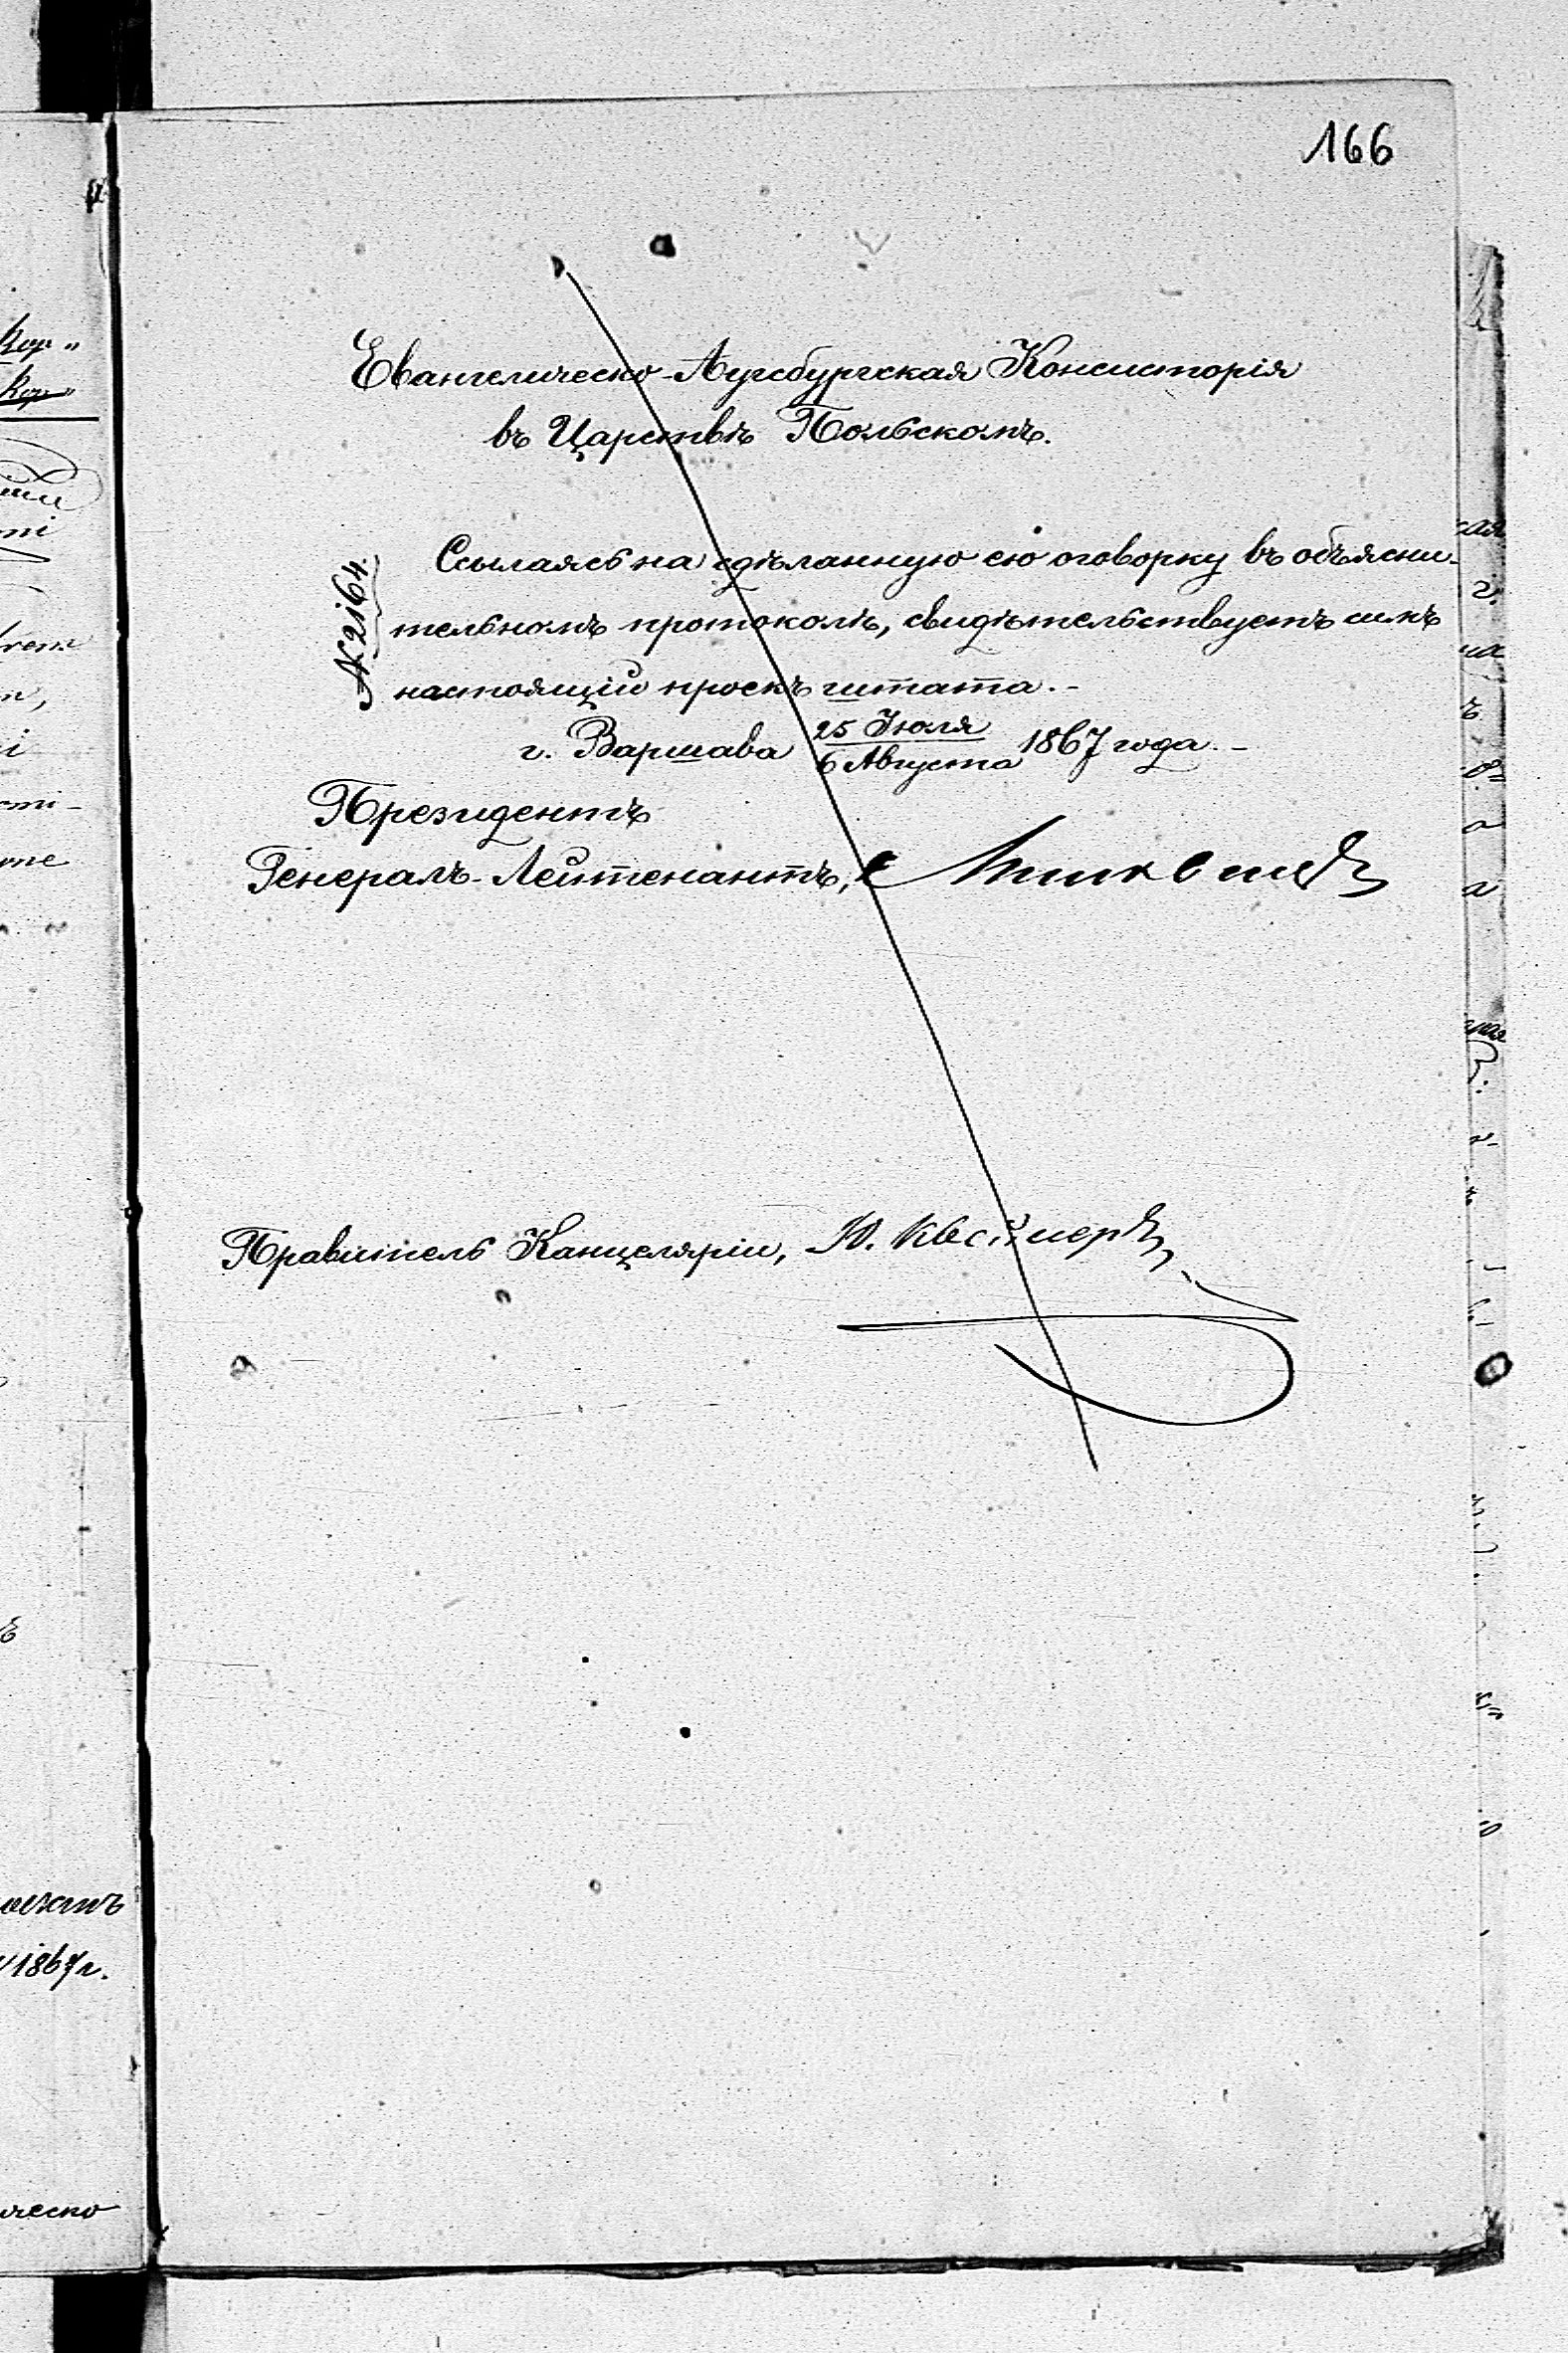 166
Евангелическо-Аугсбургская Консисторія
въ Царствѣ Польскомъ.
№ 2164.
Ссылаясь на сдѣланную ею оговорку въ объясни-
тельномъ протоколѣ, свидѣтельствуетъ симъ
настоящій проэкъ штата.-
г. Варшава 25 Іюля / 6 Августа 1867 года.-
Президентъ
Генералъ-Лейтенантъ,
Правитель Канцеляріи, Ю.
1867 г.